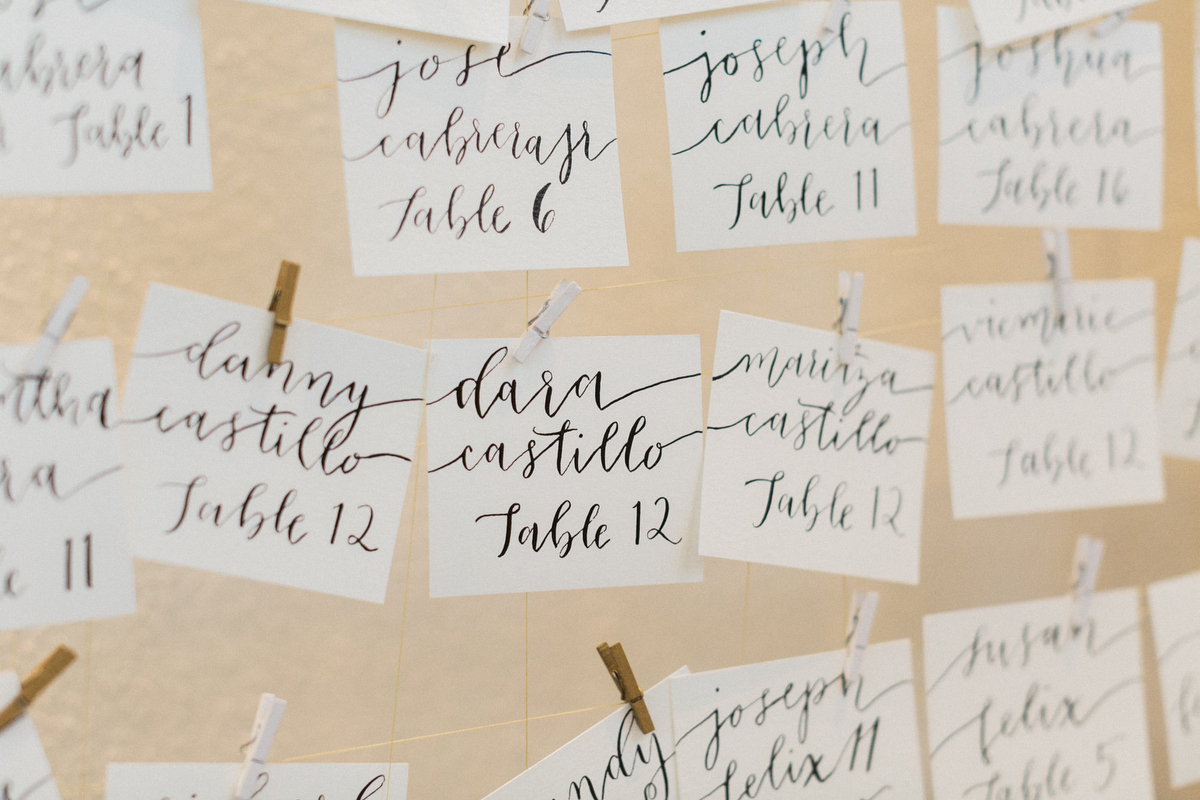 cabrera
Table 1
jose
cabrera jr
Table 6
joseph
cabrera
Table 11
joshua
cabrera
Table 16
11
danny
castillo
Table 12
dara
castillo
Table 12
maritza
castillo
Table 12
viemarie
castillo
Table 12
joseph
felix 11
susan
felix
Table 5